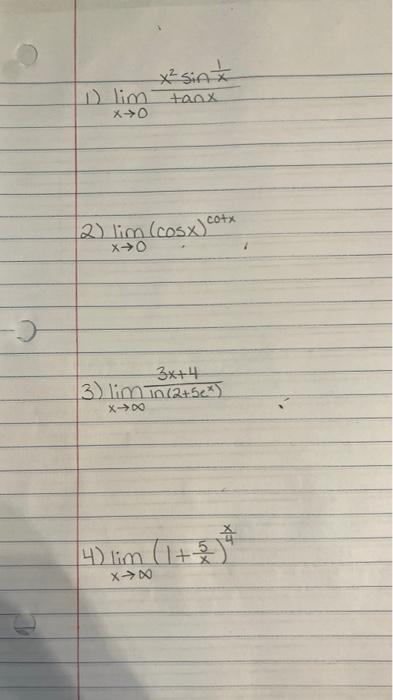 1) lim x→0 x² sin 1/x / tanx
2) lim x→0 (cosx)^cotx
3) lim x→∞ 3x+4 / ln(2+5eˣ)
4) lim x→∞ (1+5/x)^x/4